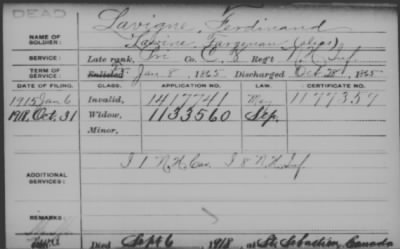 DEAD
Lavigne, Ferdinand
NAME OF SOLDIER: (alias)
SERVICE: Late rank, Pri Co. Reg't Inf.
TERM OF SERVICE: Enlisted Jan 8, 1865 Discharged Oct 28, 1865
DATE OF FILING. CLASS. APPLICATION NO. LAW. CERTIFICATE NO.
1915 Jan 6 Invalid, 1417741 May 1177357
1918, Oct. 31 Widow, 1133560 Sep.
Minor,
ADDITIONAL SERVICES: I 1 N.H. Cav. I 8 N.H. Inf
REMARKS:
Died Sept 6, 1918, at St. Sebastien, Canada